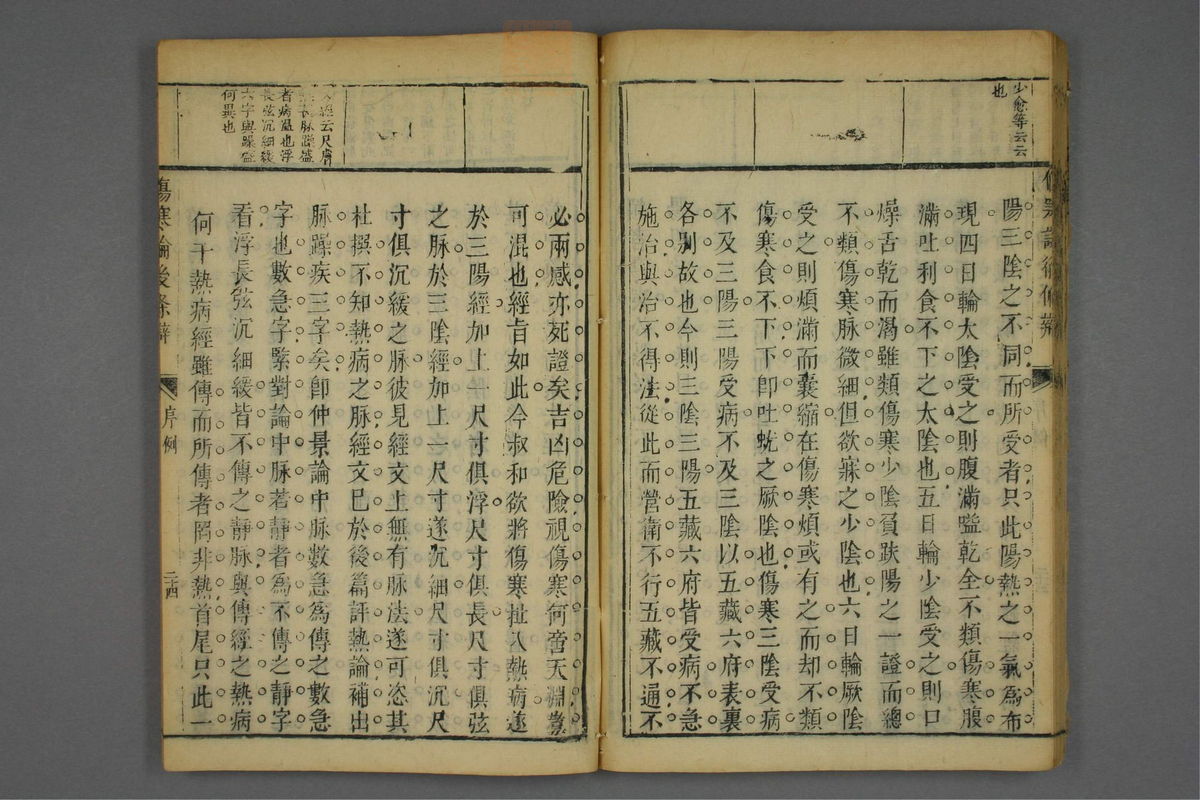 少愈等云云
也
陽三陰之不同而所受者只此陽熱之一氣為布
現四日輪太陰受之則腹滿嗌乾全不類傷寒腹
滿吐利食不下之太陰也五日輪少陰受之則口
燥舌乾而渴雖類傷寒少陰負趺陽之一證而總
不類傷寒脈微細但欲寐之少陰也六日輪厥陰
受之則煩滿而囊縮在傷寒煩或有之而却不類
傷寒食不下下卽吐蚘之厥陰也傷寒三陰受病
不及三陽三陽受病不及三陰以五藏六府表裏
各別故也今則三陰三陽五藏六府皆受病不急
施治與治不得法從此而營衛不行五藏不通不
經云尺膚
脈躁盛
者病溫也浮
長弦沉細緩
六字與躁盛
何異也
必兩感亦死證矣吉凶危險視傷寒何啻天淵豈
可混也經旨如此今叔和欲將傷寒扯入熱病遂
於三陽經加上一尺寸俱浮尺寸俱長尺寸俱弦
之脈於三陰經加上一尺寸遂沉細尺寸俱沉尺
寸俱沉緩之脈彼見經文上無有脈法遂可恣其
杜撰不知熱病之脈經文已於後篇評熱論補出
脈躁疾三字矣卽仲景論中脈數急為傳之數急
字也數急字緊對論中脈若靜者為不傳之靜字
看浮長弦沉細緩皆不傳之靜脈與傳經之熱病
何干熱病經雖傳而所傳者罔非熱首尾只此一
傷寒論後條辨
序例
二十四